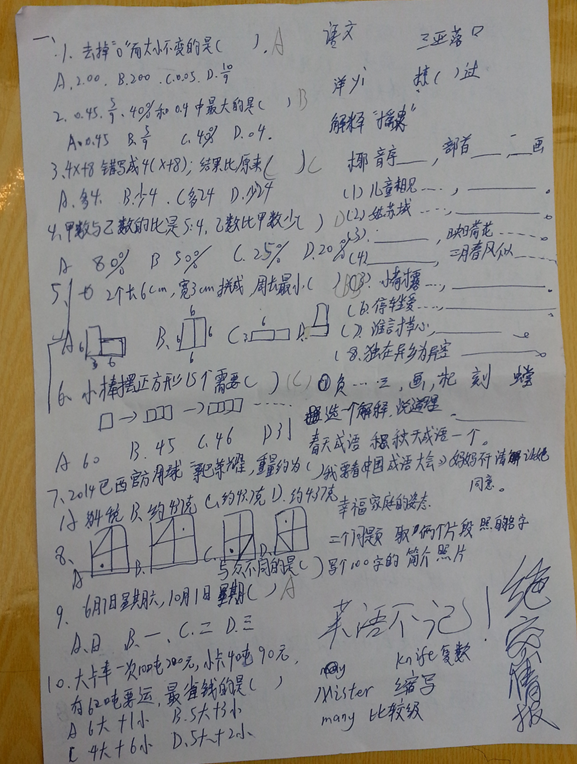 一、1. 去掉“0”而大小不变的是( ). A
A. 2.00 B. 200 C. 0.05 D. 10/9
2. 0.45, 5/9, 40%和0.4中最大的是( ) B
A. 0.45 B. 5/9 C. 4% D. 0.4.
3. 4x+8错写成4(x+8); 结果比原来( ) C
A. 多4. B. 少4. C. 多24 D. 少24
4. 甲数与乙数的比是5:4, 乙数比甲数少( ) D
A 80% B 50% C. 25% D. 20%
5. 2个长6cm, 宽3cm拼成 周长最小( ) B
A 6 3 6 B. 6 6 6 C. 2 6 D.
6. 小棒摆正方形15个需要( ) C
A 60 B. 45 C. 46 D 31
7. 2014巴西官方用球 重量约为( )
B. 约43克 C. 约43.7克 D. 约437克
8.
A B. C. D.
与众不同的是( )
9. 6月1日星期六, 10月1日星期( ) A
A. 日 B. 一、C. 二 D. 三
10. 大卡车一次100吨200元, 小卡40吨90元,
有620吨要运, 最省钱的是( )
A 6大+1小 B. 5大+3小
C 4大+6小 D. 5大+2小
语文 三亚落口
洋yi 挤( )过
解释“
椰 音序___, 部首___, 二画
(1) 儿童相见…., ______。
(2) 姑苏城…., ______。
(3). ______, 映日荷花….。
(4) ______, 二月春风似….
小荷才露…, ______。
(6. 停车坐爱…., ______
(7). 谁言寸草心, ______。
(8. 独在异乡为异客 ______
负…三, 画, 祀 刻 螳
选一个解释, 说道理.______
春天成语 和秋天成语一个。
我要看中国成语大会》妈妈不 请解说她
同意。
幸福家庭的姿态.
三个问题 取“俩个片段 照的名字
写个100字的简介 照片
英语不记!
knife 复数
Mister 缩写
many 比较级
绝密情报